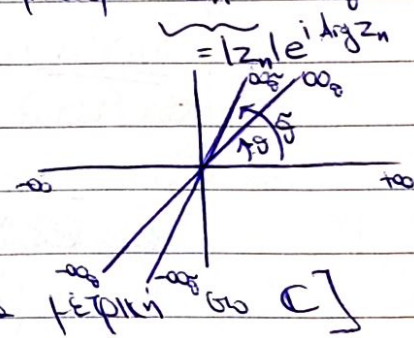 = |z_n| e^{i Arg z_n}
∞_θ̃ ∞_θ
θ̃
θ
-∞ +∞
-∞_θ -∞_θ̃
μετρική στο ℂ]